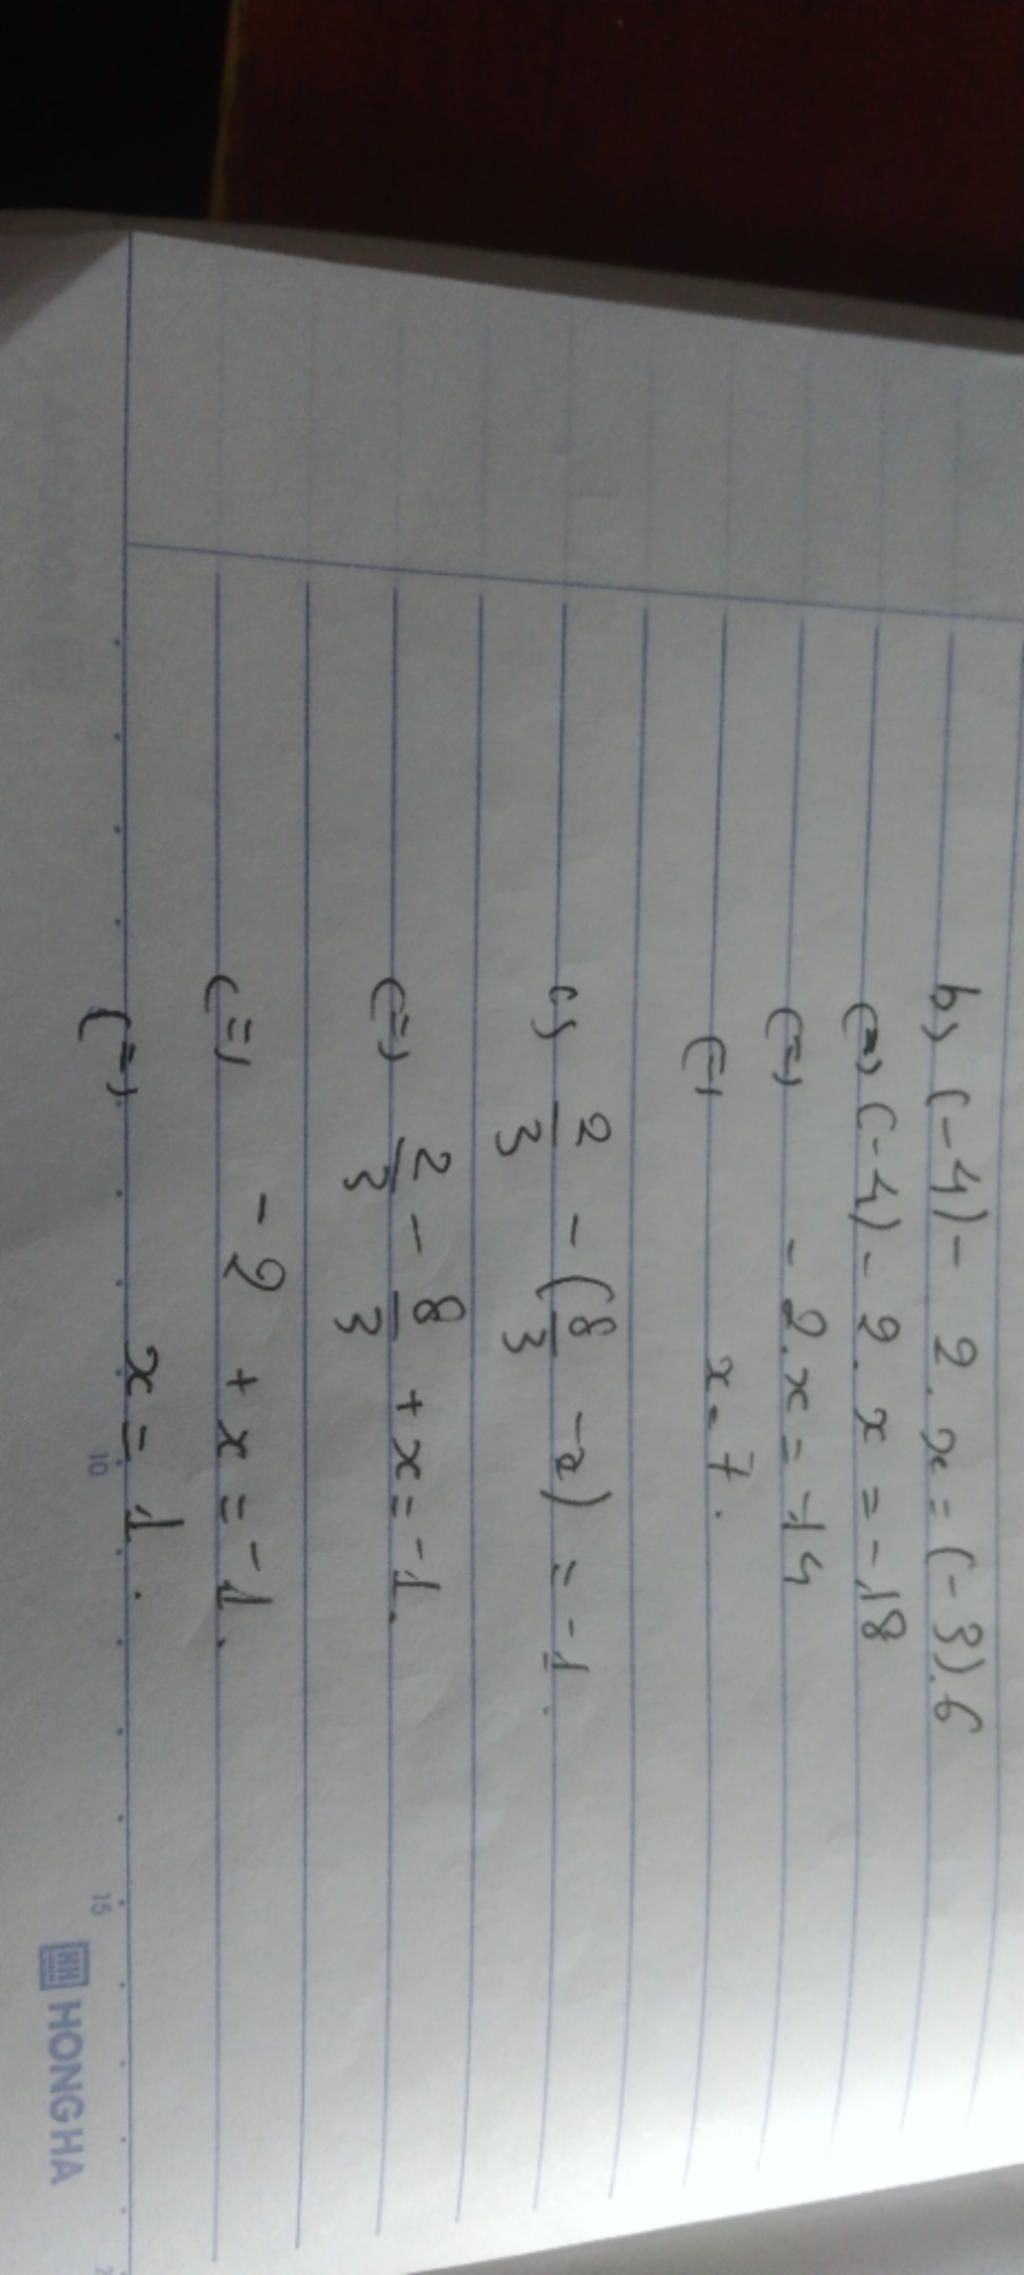 b) (-4) - 2.x = (-3).6
(=) (-4) - 2.x = -18
(=) - 2.x = -14
(=) x = 7.
c) 2/3 - (8/3 - x) = -1.
(=) 2/3 - 8/3 + x = -1.
(=) - 2 + x = -1.
(=) x = 1.
10
15
HONG HA